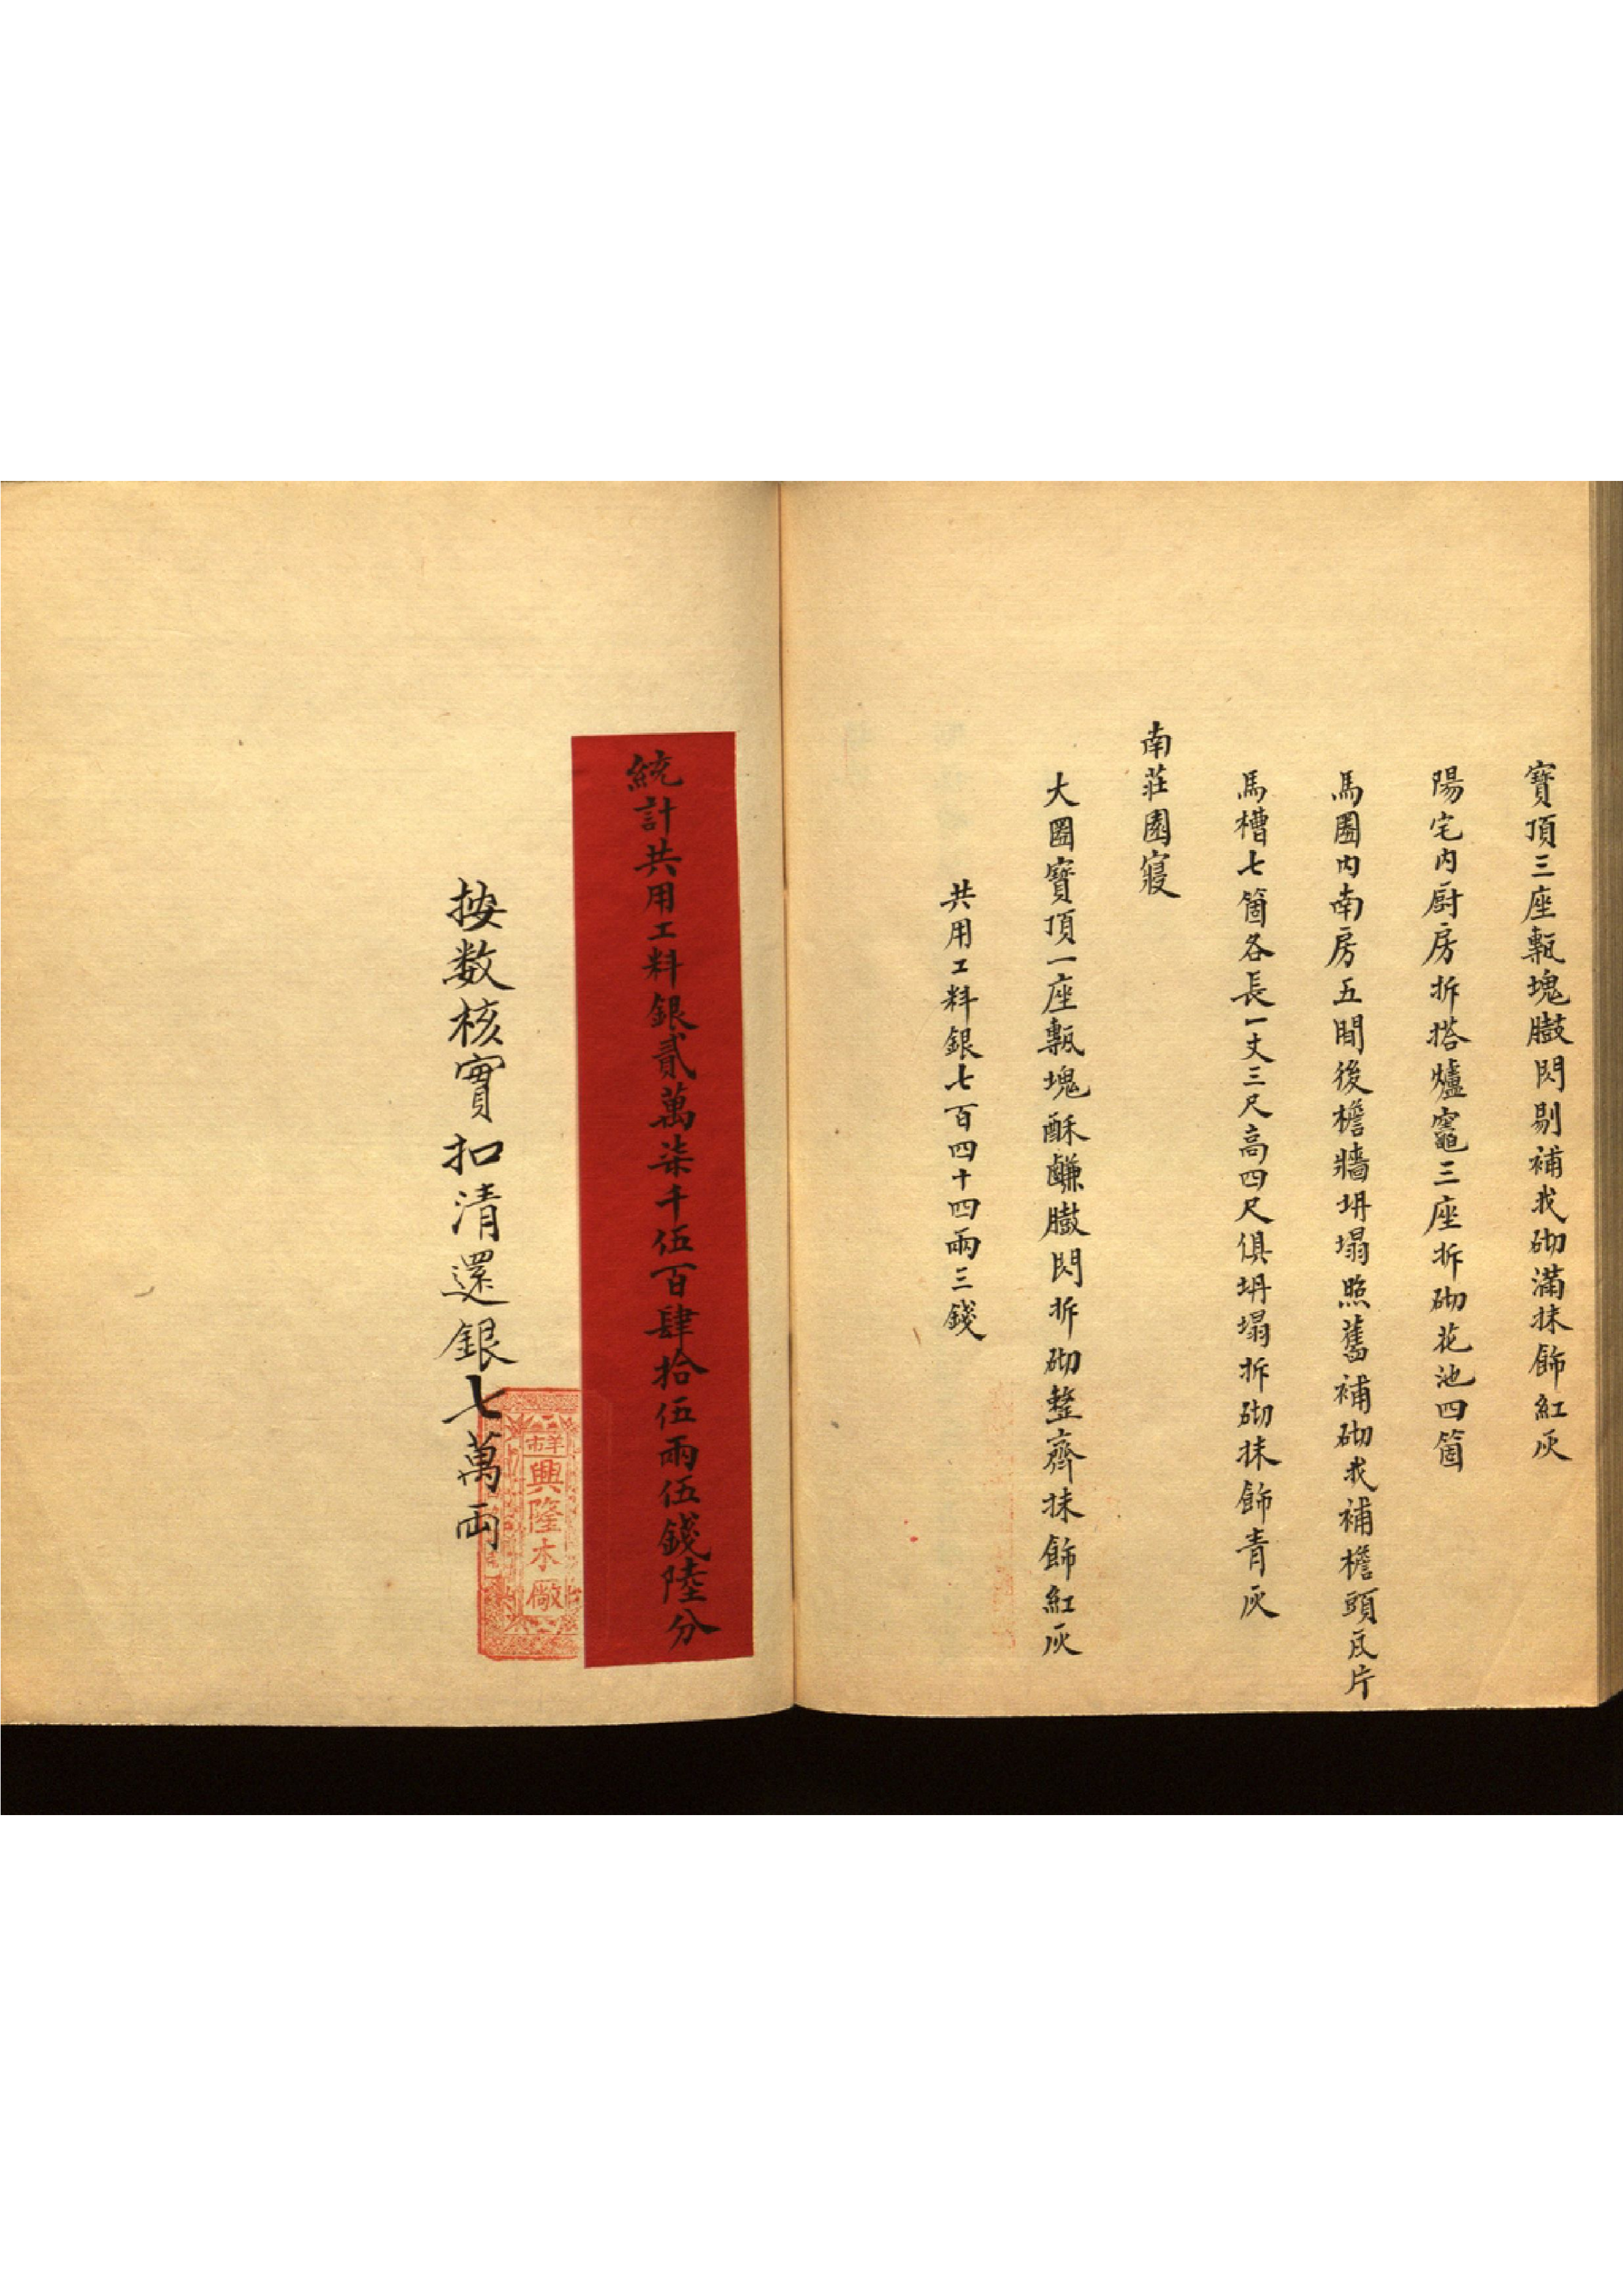 寶頂三座甎塊臌閃剔補找砌滿抹飾紅灰
陽宅内厨房拆搭爐竈三座拆砌花池四箇
馬圈内南房五間後檐牆坍塌照舊補砌找補檐頭瓦片
馬槽七箇各長一丈三尺高四尺俱坍塌拆砌抹飾青灰
南莊園寢
大圈寶頂一座甎塊酥鹻臌閃拆砌整齊抹飾紅灰
共用工料銀七百四十四兩三錢
統計共用工料銀貳萬柒千伍百肆拾伍兩伍錢陸分
羊市
興隆木廠
按数核實扣清還銀七萬両